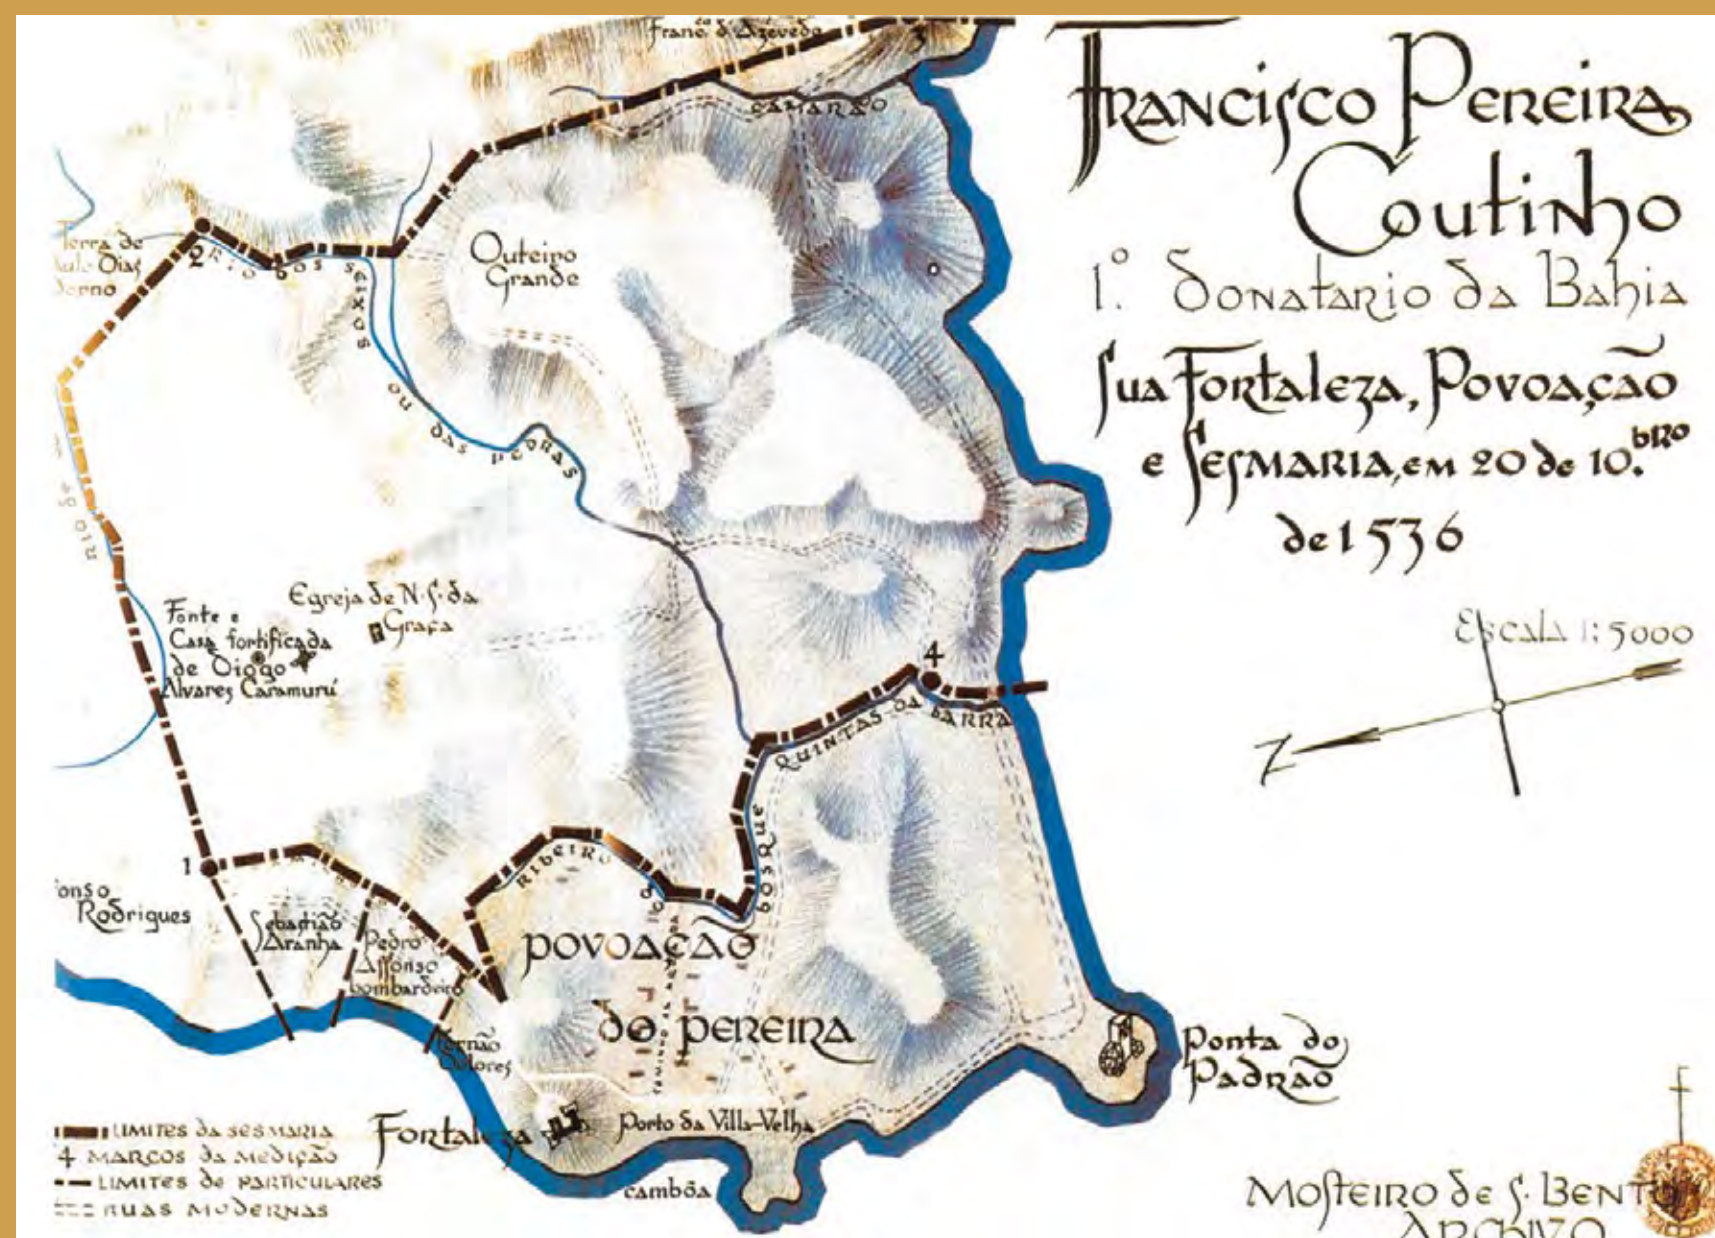 Francisco Pereira
Coutinho
1.º Donatario da Bahia
Sua Fortaleza, Povoação
e Sesmaria, em 20 de 10.bro
de 1536
Escala 1:5000
N
Franc.co d'Azevedo
3
Camarão
Terra de
Dias
2
Rio dos Seixos ou das Pedras
Outeiro
Grande
Rio
Egreja de N. S. da
Graça
Fonte e
Casa fortificada
de Diogo
Alvares Caramurú
4
Quintas da Barra
1
onso
Rodrigues
Sebastião
Aranha
Pedro
Affonso
bombardeiro
Ribeiro do Bosque
Povoação
do Pereira
Fernão
Dolores
Fortaleza
Porto da Villa-Velha
Cambôa
Ponta do
Padrão
Limites da Sesmaria
4 Marcos da Medição
Limites de Particulares
Ruas Modernas
Mosteiro de S. Bento
Archivo